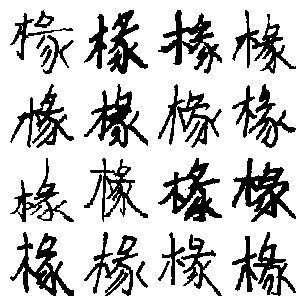 椽椽椽椽
椽椽椽椽
椽椽椽椽
椽椽椽椽